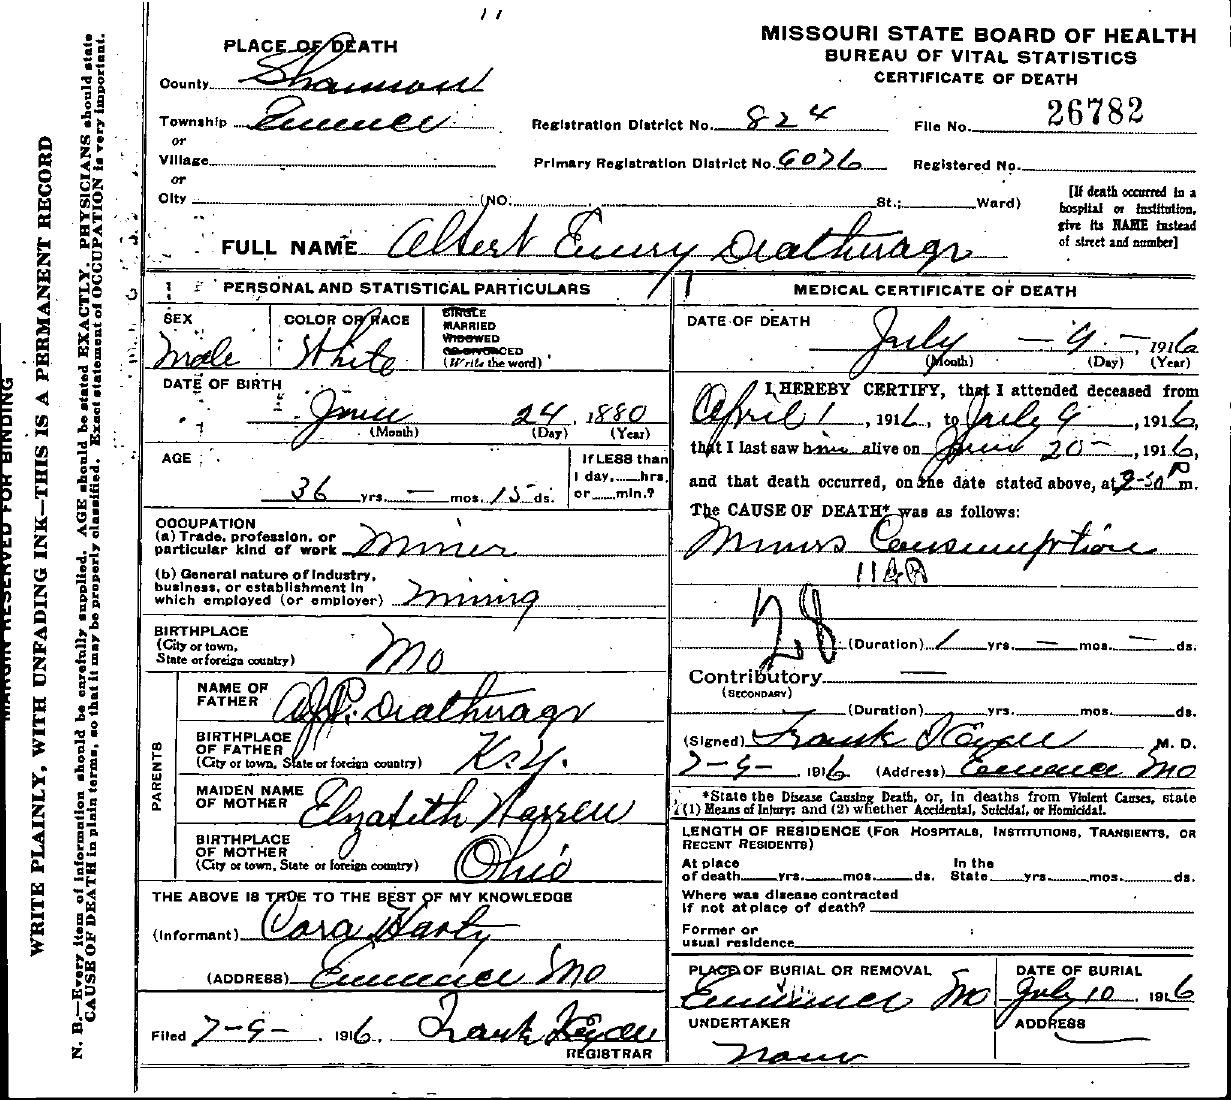 MISSOURI STATE BOARD OF HEALTH
BUREAU OF VITAL STATISTICS
CERTIFICATE OF DEATH
PLACE OF DEATH
County Shannon
Township Eminence
or
Village
or
City (NO. St.; Ward)
Registration District No. 824
File No. 26782
Primary Registration District No. 6076
Registered No.
[If death occurred in a
hospital or institution,
give its NAME instead
of street and number]
FULL NAME Albert Emry Deatherage
PERSONAL AND STATISTICAL PARTICULARS
SEX
Male
COLOR OR RACE
White
SINGLE
MARRIED
WIDOWED
OR DIVORCED
(Write the word)
DATE OF BIRTH
June 24, 1880
(Month) (Day) (Year)
AGE
36 yrs. — mos. 15 ds.
If LESS than
1 day, hrs.
or min.?
OCCUPATION
(a) Trade, profession, or
particular kind of work Miner
(b) General nature of industry,
business, or establishment in
which employed (or employer) Mining
BIRTHPLACE
(City or town,
State or foreign country) Mo
PARENTS
NAME OF
FATHER Deatherage
BIRTHPLACE
OF FATHER
(City or town, State or foreign country) Ky.
MAIDEN NAME
OF MOTHER Elzabeth Warren
BIRTHPLACE
OF MOTHER
(City or town, State or foreign country) Ohio
THE ABOVE IS TRUE TO THE BEST OF MY KNOWLEDGE
(Informant) Cora
(ADDRESS) Eminence Mo
Filed 7-9-, 1916. Frank Hyde
REGISTRAR
MEDICAL CERTIFICATE OF DEATH
DATE OF DEATH
July - 9 -, 1916
(Month) (Day) (Year)
I HEREBY CERTIFY, that I attended deceased from
April 1, 1916, to July 9, 1916,
that I last saw him alive on June 20-, 1916,
and that death occurred, on the date stated above, at P m.
The CAUSE OF DEATH* was as follows:
Miners Consumption
28
(Duration) 1 yrs. — mos. — ds.
Contributory —
(SECONDARY)
(Duration) yrs. mos. ds.
(Signed) Frank Hyde M. D.
7-9-, 1916 (Address) Eminence Mo
*State the Disease Causing Death, or, in deaths from Violent Causes, state
(1) Means of Injury; and (2) whether Accidental, Suicidal, or Homicidal.
LENGTH OF RESIDENCE (FOR HOSPITALS, INSTITUTIONS, TRANSIENTS, OR
RECENT RESIDENTS)
At place
of death yrs. mos. ds.
In the
State yrs. mos. ds.
Where was disease contracted
if not at place of death?
Former or
usual residence
PLACE OF BURIAL OR REMOVAL
Eminence Mo
DATE OF BURIAL
July 10, 1916
UNDERTAKER
None
ADDRESS
MARGIN RESERVED FOR BINDING
WRITE PLAINLY, WITH UNFADING INK—THIS IS A PERMANENT RECORD
N. B.—Every item of information should be carefully supplied. AGE should be stated EXACTLY. PHYSICIANS should state
CAUSE OF DEATH in plain terms, so that it may be properly classified. Exact statement of OCCUPATION is very important.